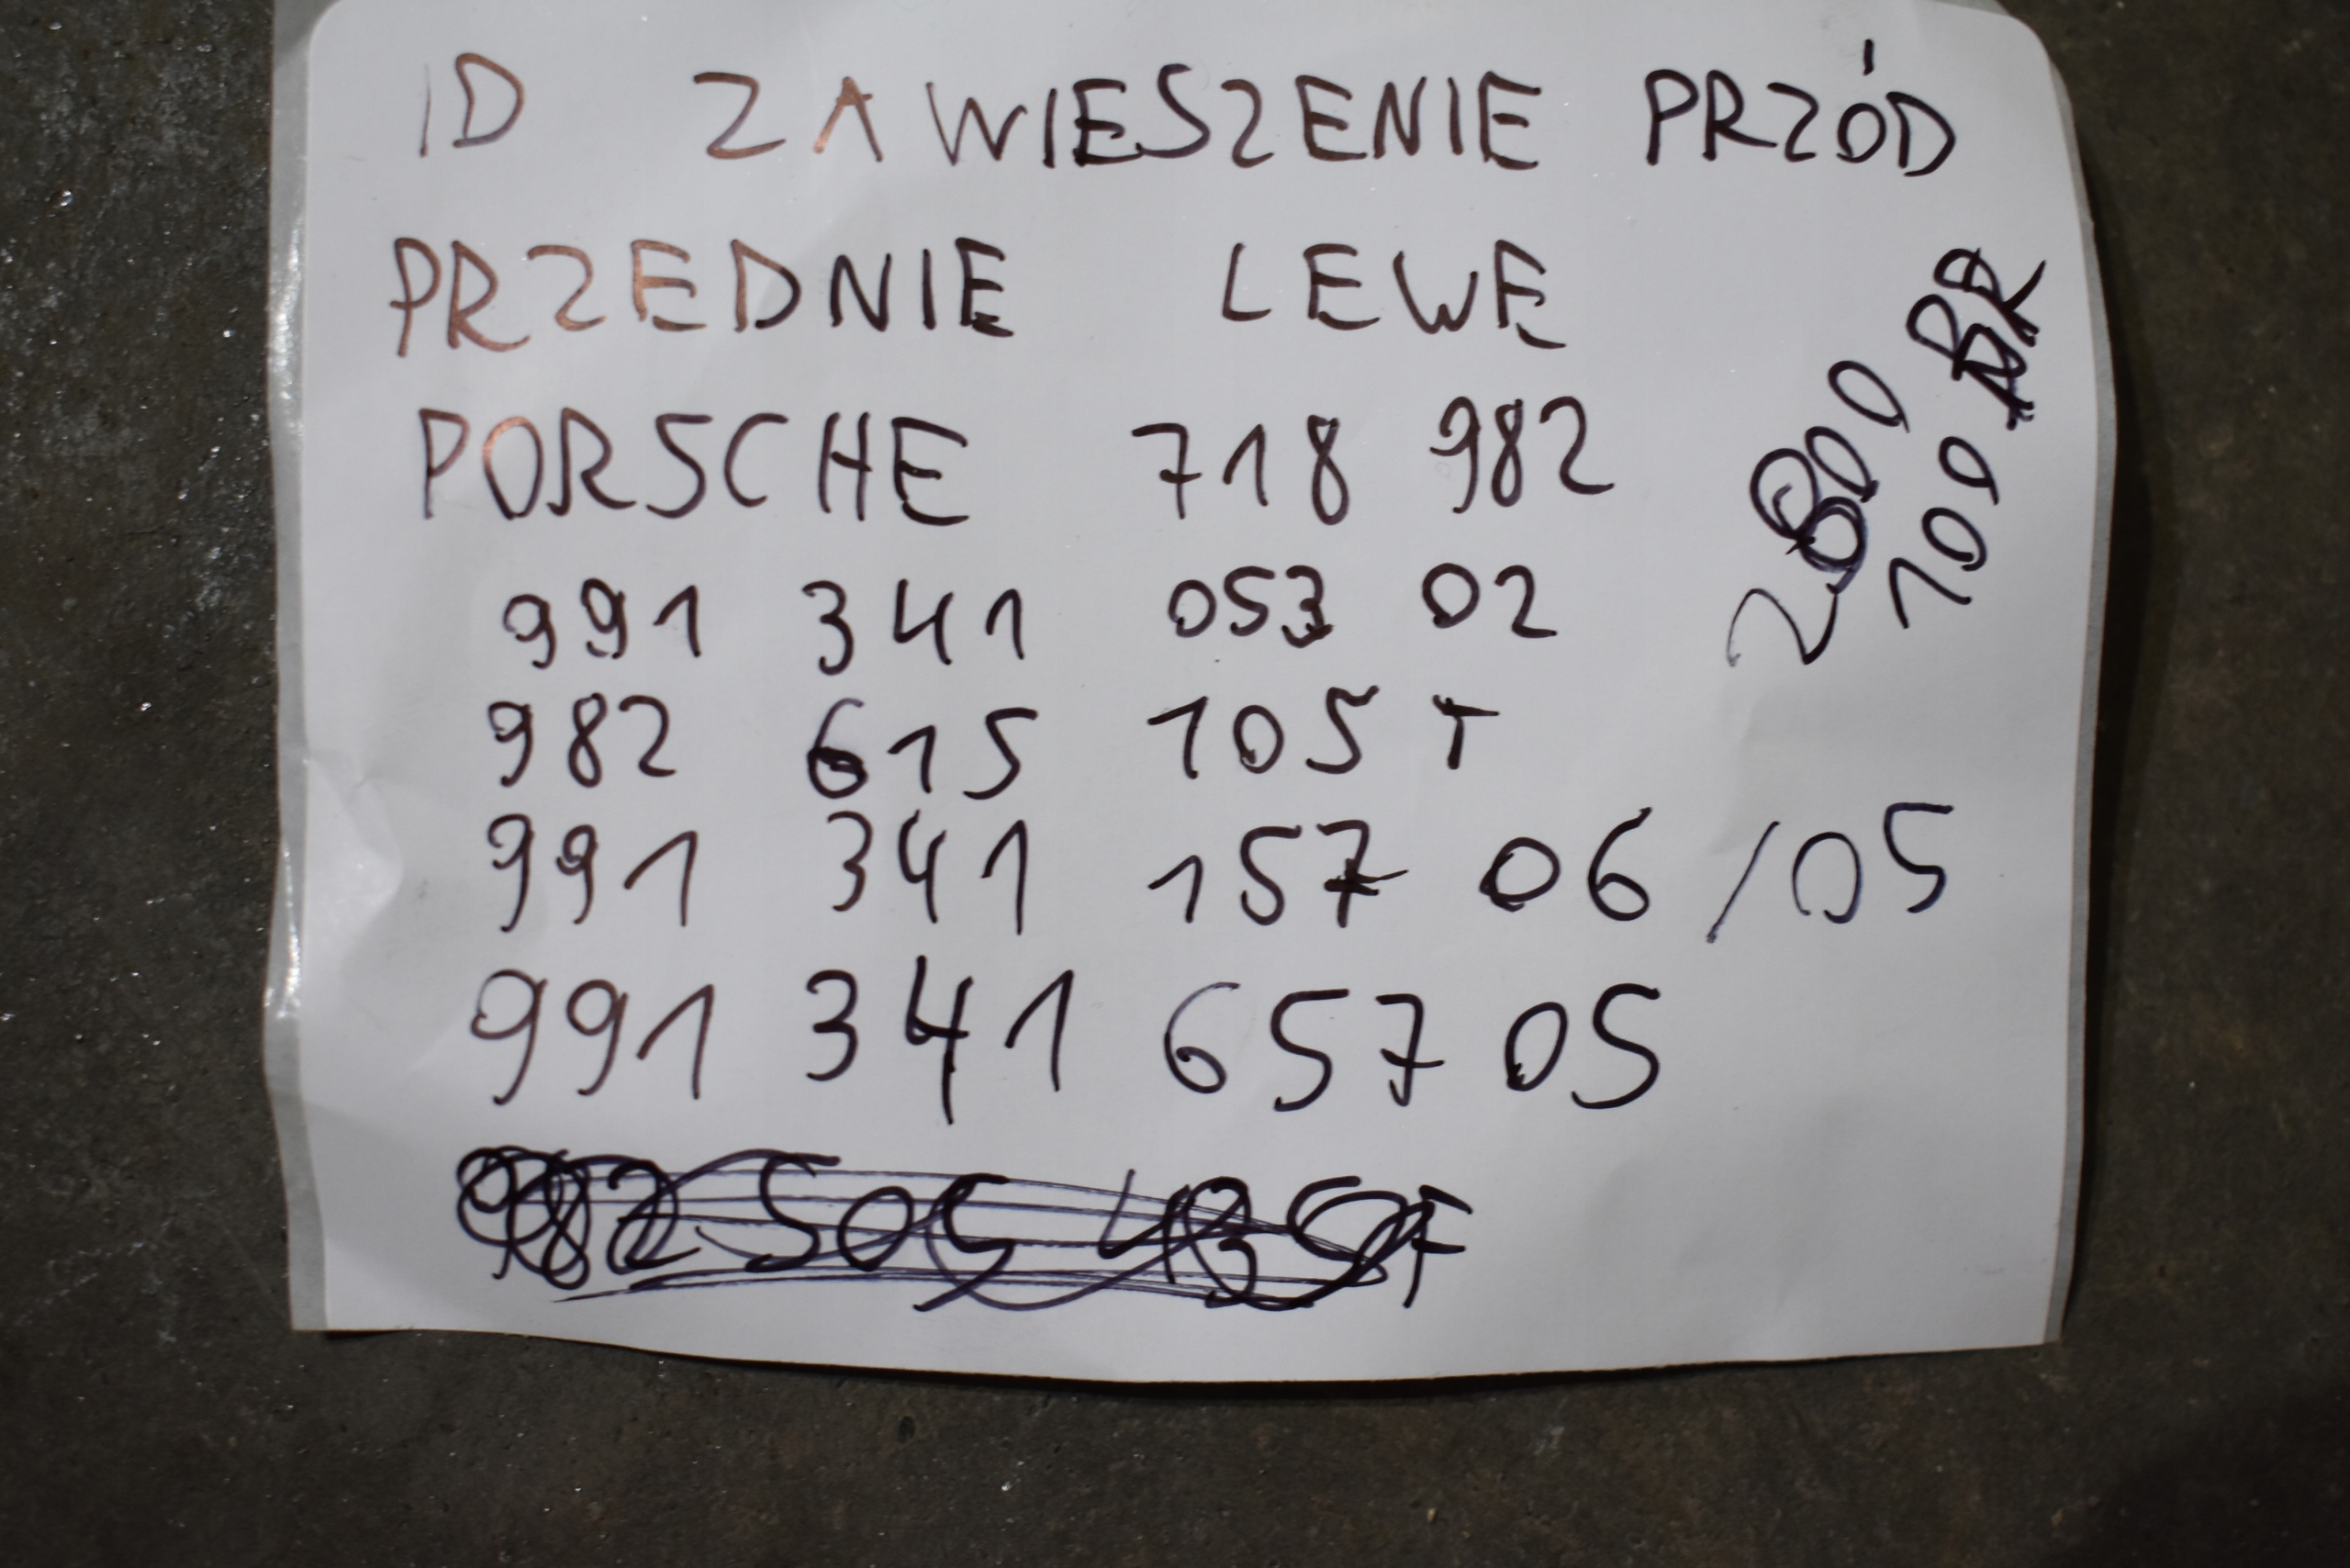 ID ZAWIESZENIE PRZÓD
PRZEDNIE LEWE
PORSCHE 718 982
991 341 053 02
982 615 105 T
991 341 157 06 /05
991 341 657 05
2800
100 BR